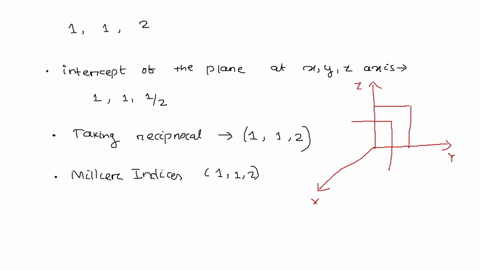 1, 1, 2
• intercept of the plane at x, y, z axis →
1, 1, 1/2
• Taking reciprocal → (1, 1, 2)
• Millere Indices (1, 1, 2)
Z
Y
X